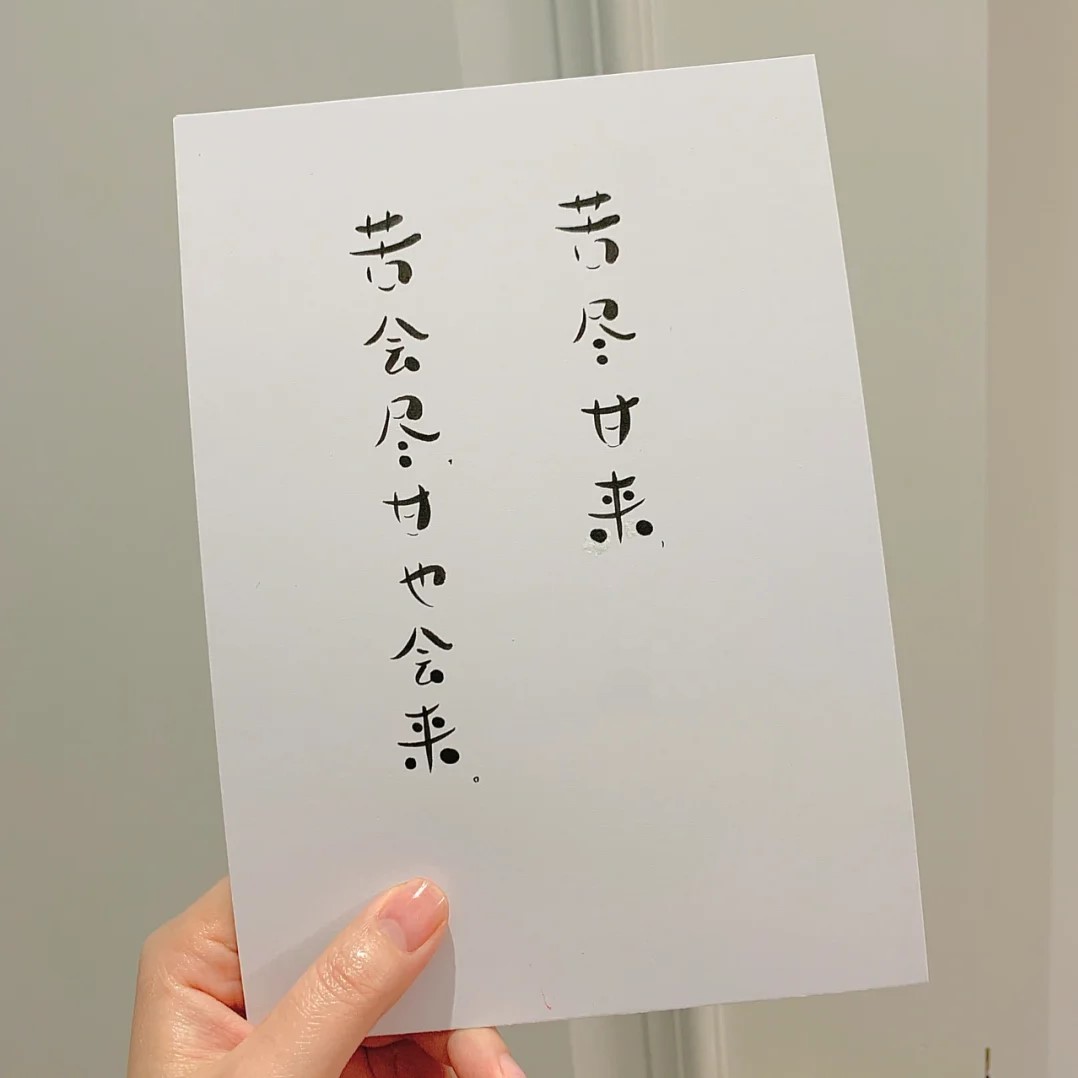 苦尽甘来，
苦会尽，甘也会来。